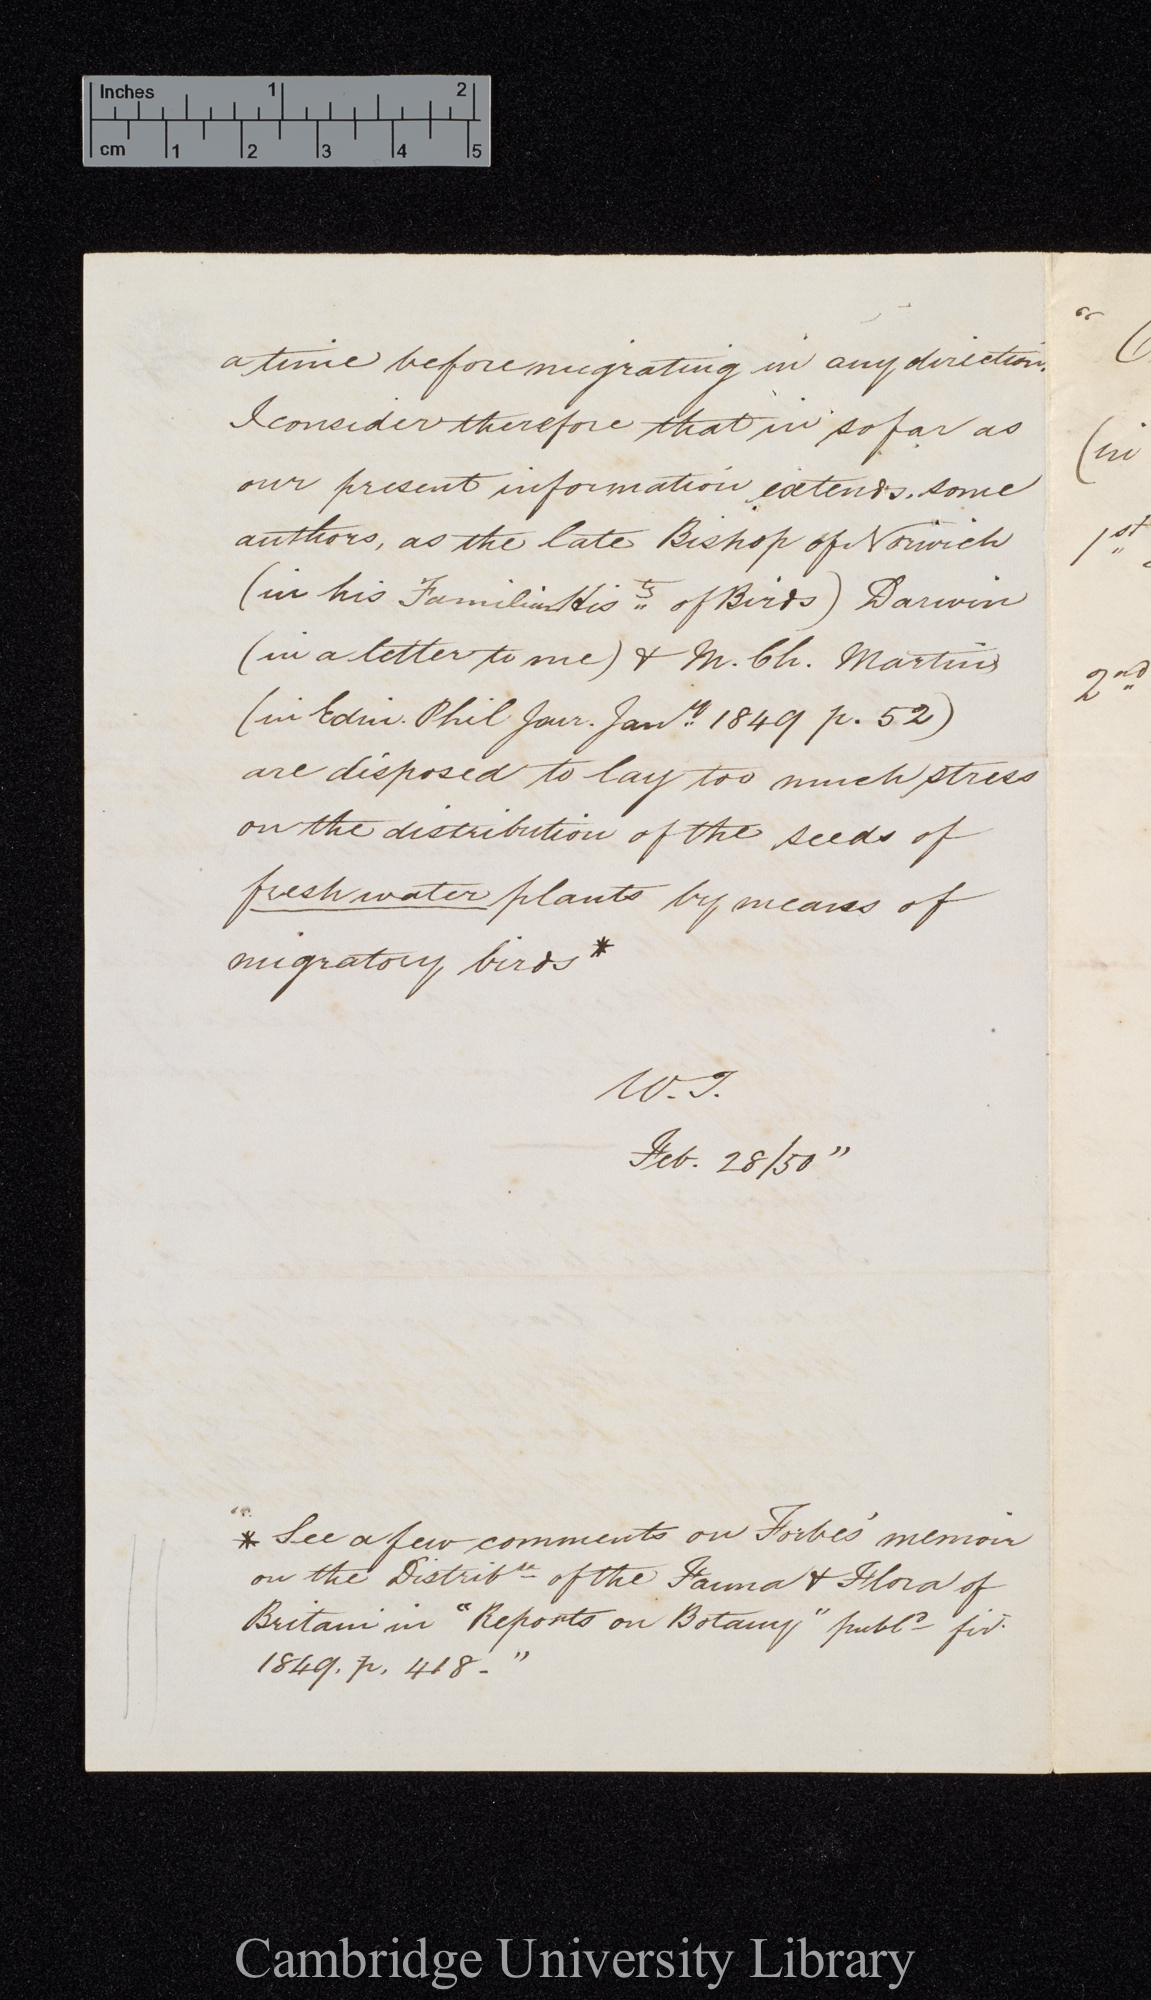 Inches 1 2
cm 1 2 3 4 5
a time before migrating in any direction.
I consider therefore that in so far as
our present information extends, some
authors, as the late Bishop of Norwich
(in his Familiar Histy of Birds) Darwin
(in a letter to me) & M. Ch. Martins
(in Edin. Phil Jour. Jany 1849 p. 52)
are disposed to lay too much stress
on the distribution of the seeds of
fresh water plants by means of
migratory birds*
W. T.
Feb. 28/50"
"
* See a few comments on Forbes' memoir
on the Distribn of the Fauna & Flora of
Britain in "Reports on Botany" publd
1849. p. 418-"
"
(in
1st
2nd
Cambridge University Library